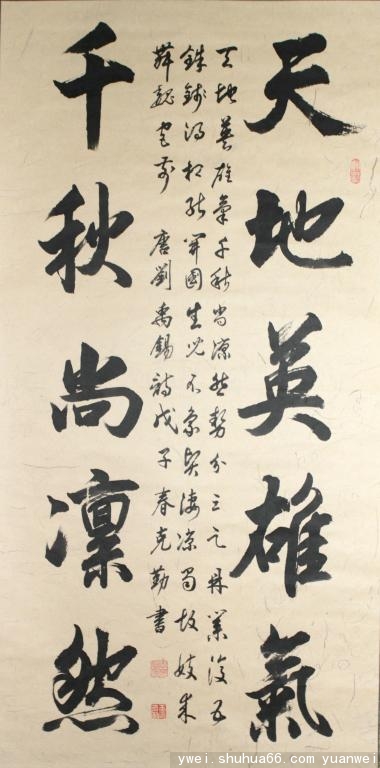 天地英雄氣
天地英雄氣千秋尚凜然勢分三足鼎業復五
銖錢得相能開國生兒不象賢淒涼蜀故妓來
舞魏宮前 唐劉禹錫詩戊子春克勤書
千秋尚凜然
ywei.shuhua66.com yuanwei